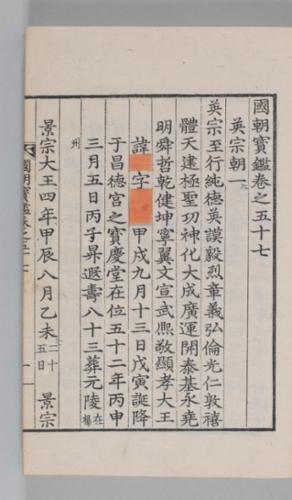 國朝寶鑑卷之五十七
英宗朝一
英宗至行純德英謨毅烈章義弘倫光仁敦禧
體天建極聖功神化大成廣運開泰基永堯
明舜哲乾健坤寧翼文宣武熙敬顯孝大王
諱 字 甲戌九月十三日戊寅誕降
于昌德宮之寶慶堂在位五十二年丙申
三月五日丙子昇遐壽八十三葬元陵在楊
州
景宗大王四年甲辰八月乙未二十五日 景宗
國朝寶鑑卷之五十七 一